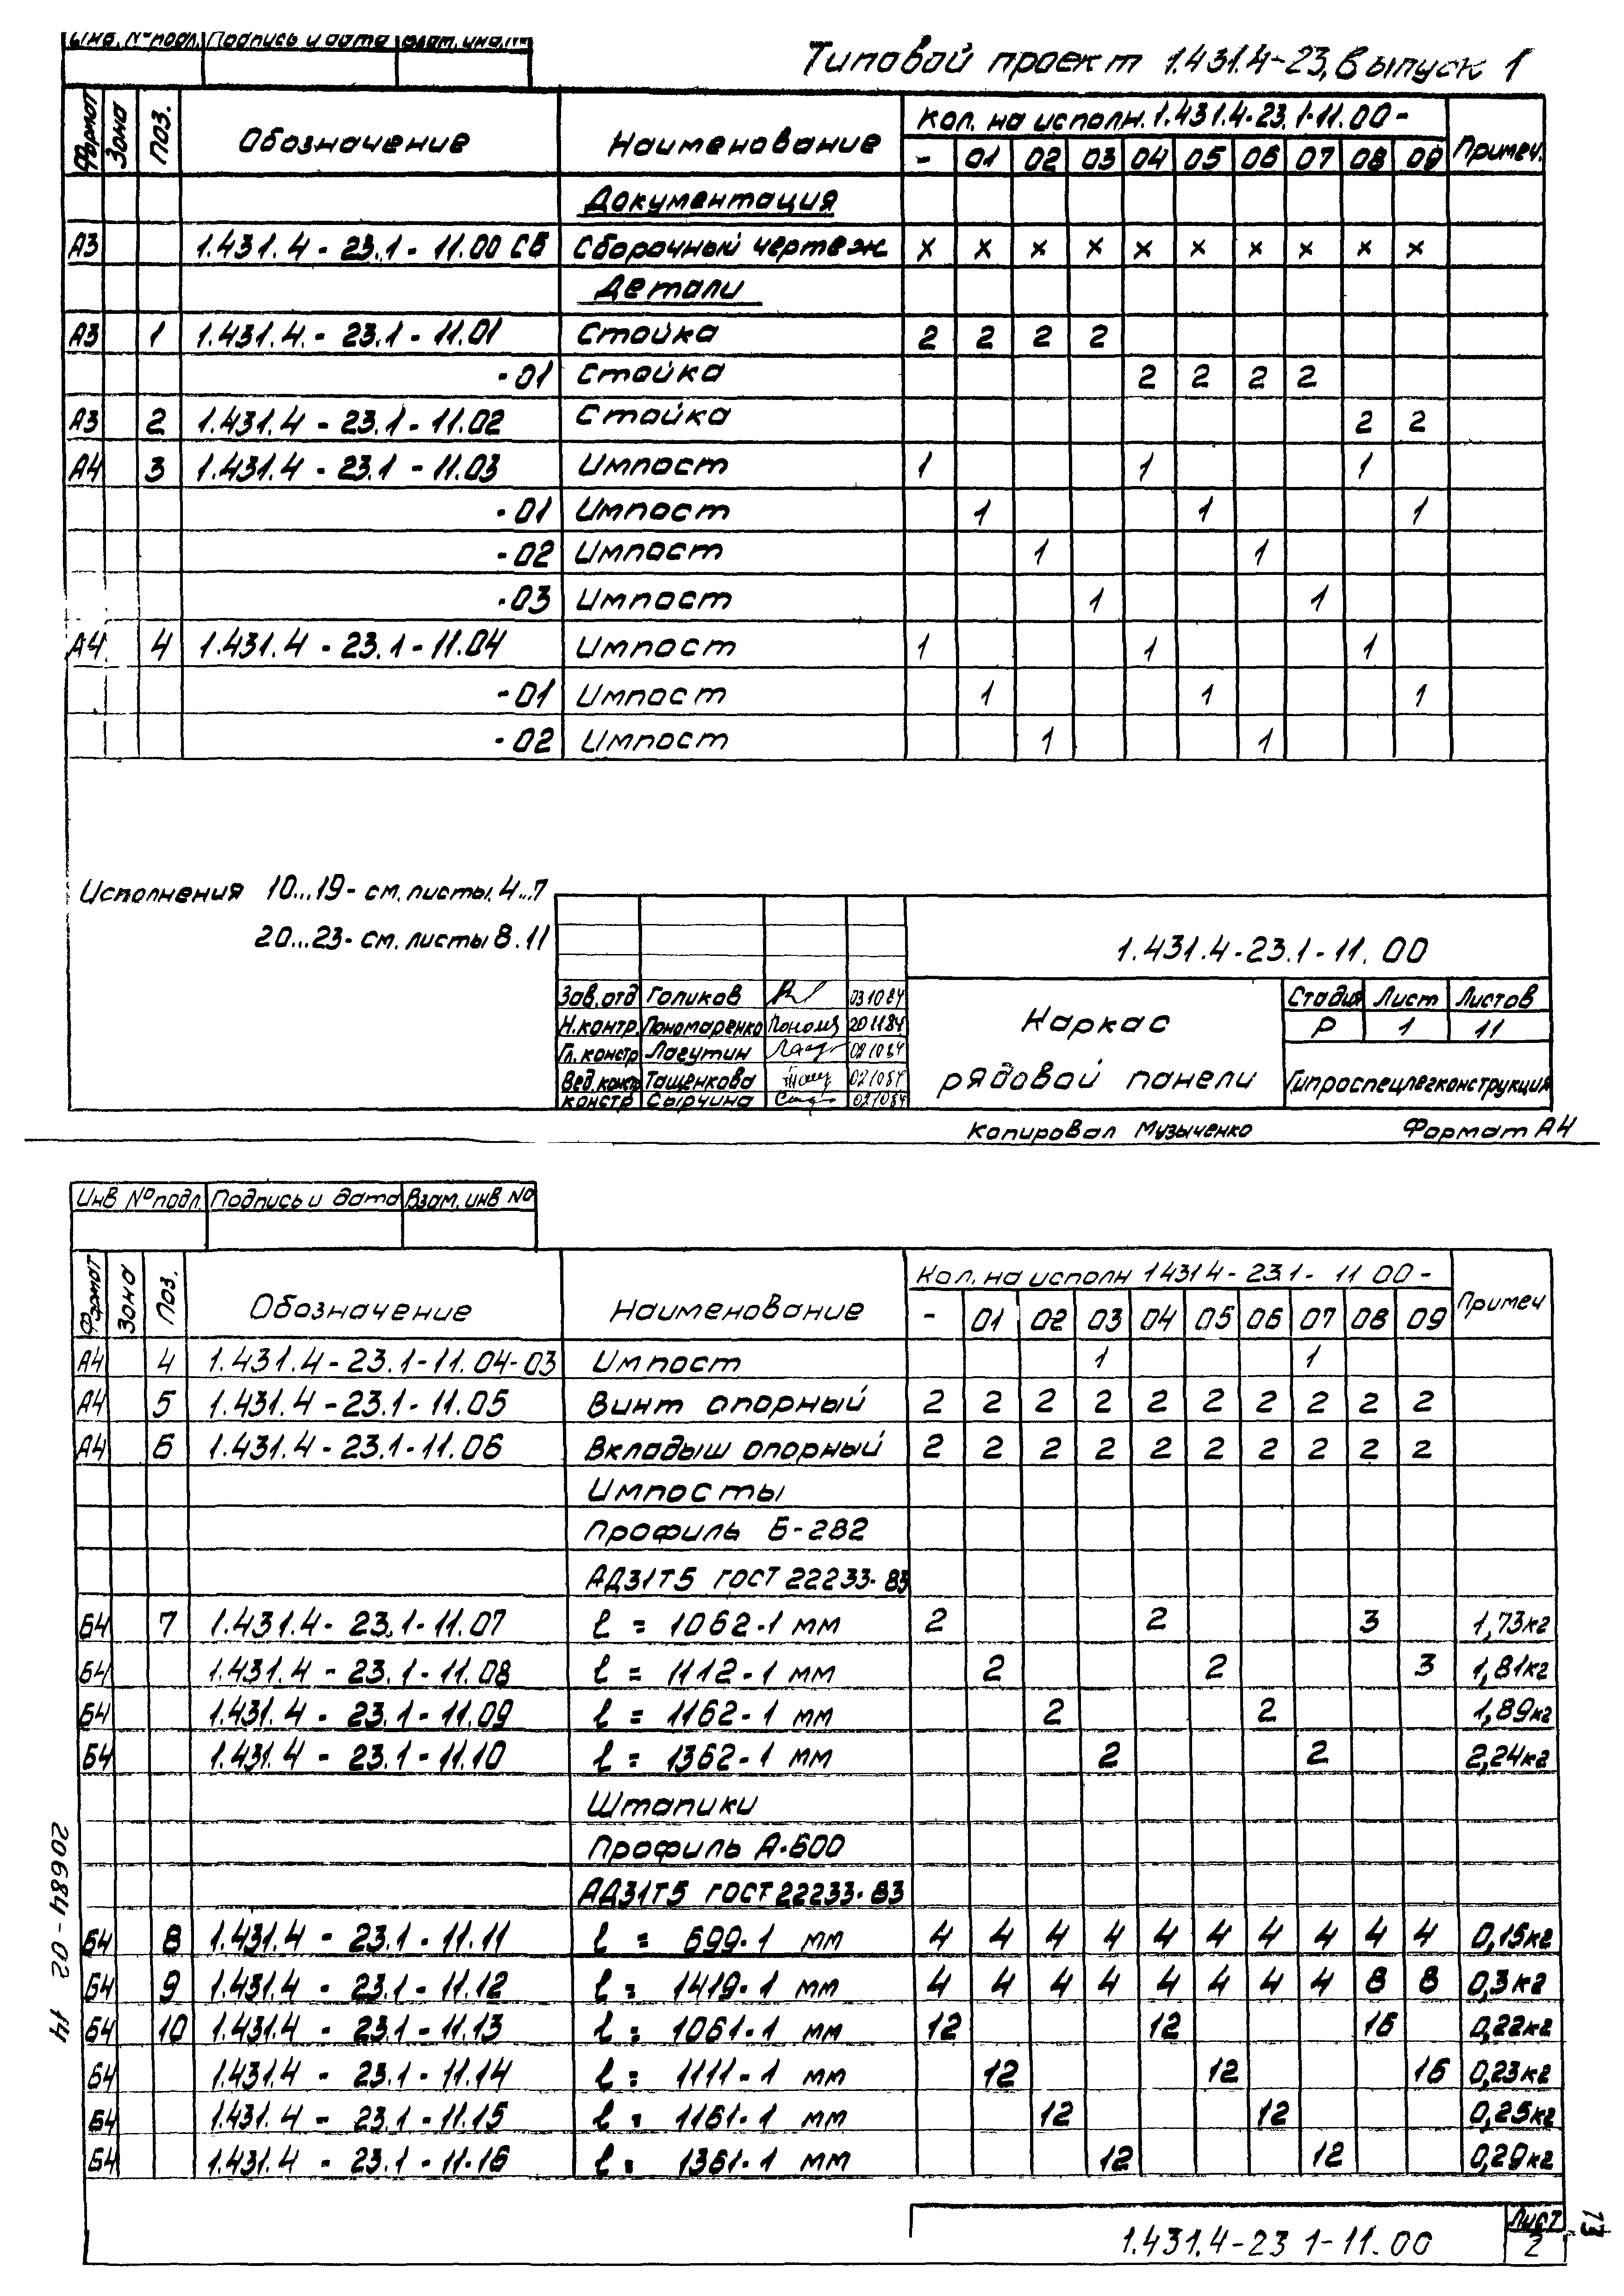 Инв. № подл. Подпись и дата Взам. инв. №
Типовой проект 1.431.4-23, Выпуск 1
Формат Зона Поз. Обозначение Наименование Кол. на исполн. 1.431.4-23.1-11.00- Примеч.
- 01 02 03 04 05 06 07 08 09
Документация
А3 1.431.4 - 23.1 - 11.00 СБ Сборочный чертеж х х х х х х х х х х
Детали
А3 1 1.431.4. - 23.1 - 11.01 Стойка 2 2 2 2
-01 Стойка 2 2 2 2
А3 2 1.431.4 - 23.1 - 11.02 Стойка 2 2
А4 3 1.431.4 - 23.1 - 11.03 Импост 1 1 1
-01 Импост 1 1 1
-02 Импост 1 1
-03 Импост 1 1
А4 4 1.431.4 - 23.1 - 11.04 Импост 1 1 1
-01 Импост 1 1 1
-02 Импост 1 1
Исполнения 10...19- см. листы 4...7
20...23- см. листы 8.11
1.431.4-23.1-11.00
Зав. отд Голиков 03 10 84
Н. контр. Пономаренко 20 11 84
Гл. констр Лагутин 02 10 84
Вед. констр Тащенкова 02 10 84
констр Сырчина 02 10 84
Каркас
рядовой панели
Стадия Лист Листов
Р 1 11
Гипроспецлегконструкция
Копировал Музыченко Формат А4
Инв № подл. Подпись и дата Взам. инв №
Формат Зона Поз. Обозначение Наименование Кол. на исполн 1 431 4 - 23.1 - 11 00 - Примеч
- 01 02 03 04 05 06 07 08 09
А4 4 1.431.4 - 23.1 - 11.04-03 Импост 1 1
А4 5 1.431.4 - 23.1 - 11.05 Винт опорный 2 2 2 2 2 2 2 2 2 2
А4 6 1.431.4 - 23.1 - 11.06 Вкладыш опорный 2 2 2 2 2 2 2 2 2 2
Импосты
Профиль Б-282
АД31Т5 ГОСТ 22233-83
Б4 7 1.431.4 - 23.1 - 11.07 ℓ = 1062-1 мм 2 2 3 1,73кг
Б4 1.431.4 - 23.1 - 11.08 ℓ = 1112-1 мм 2 2 3 1,81кг
Б4 1.431.4 - 23.1 - 11.09 ℓ = 1162-1 мм 2 2 1,89кг
Б4 1.431.4 - 23.1 - 11.10 ℓ = 1362-1 мм 2 2 2,24кг
Штапики
Профиль А-600
АД31Т5 ГОСТ 22233-83
Б4 8 1.431.4 - 23.1 - 11.11 ℓ = 699-1 мм 4 4 4 4 4 4 4 4 4 4 0,15кг
Б4 9 1.431.4 - 23.1 - 11.12 ℓ = 1419-1 мм 4 4 4 4 4 4 4 4 8 8 0,3кг
Б4 10 1.431.4 - 23.1 - 11.13 ℓ = 1061-1 мм 12 12 16 0,22кг
Б4 1.431.4 - 23.1 - 11.14 ℓ = 1111-1 мм 12 12 16 0,23кг
Б4 1.431.4 - 23.1 - 11.15 ℓ = 1161-1 мм 12 12 0,25кг
Б4 1.431.4 - 23.1 - 11.16 ℓ = 1361-1 мм 12 12 0,29кг
20684-02 14
1.431.4-23 1-11.00
Лист
2
13